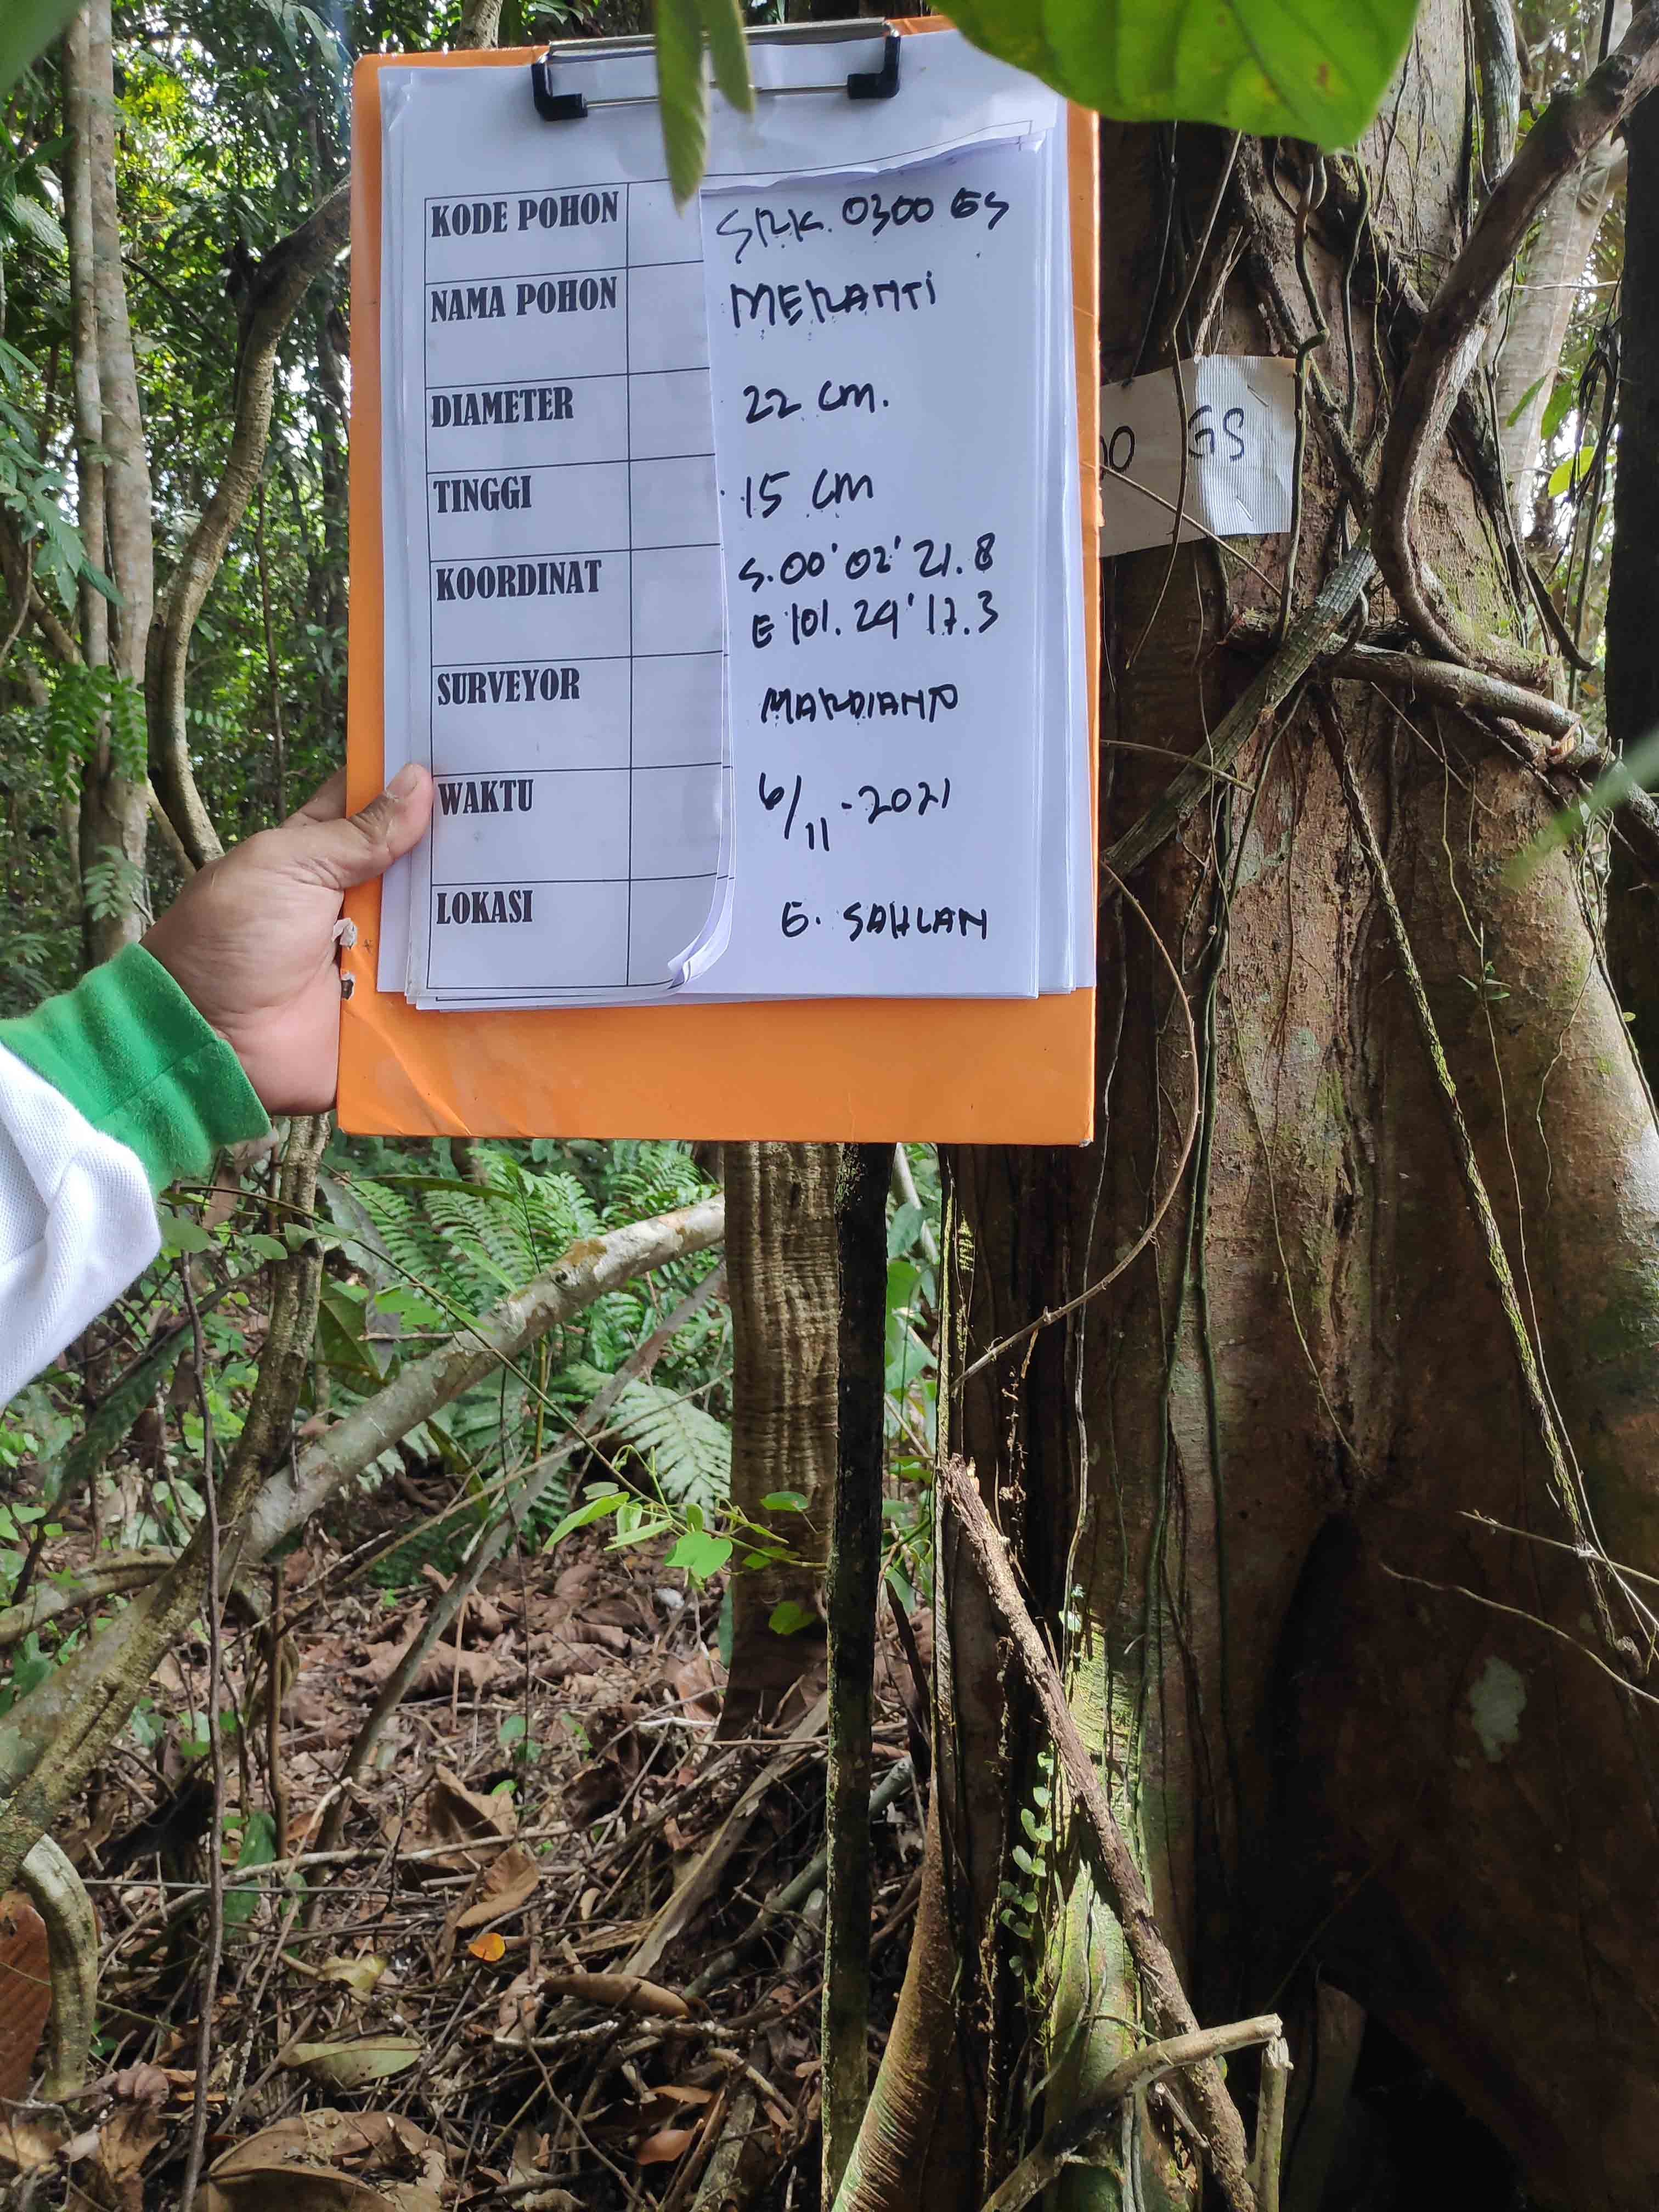 KODE POHON SRK. 0300 GS
NAMA POHON MERANTI
DIAMETER 22 cm.
TINGGI 15 cm
KOORDINAT S.00'02'21.8
E 101.29'17.3
SURVEYOR MARDIANTO
WAKTU 6/11-2021
LOKASI G. SAHLAN
0 GS